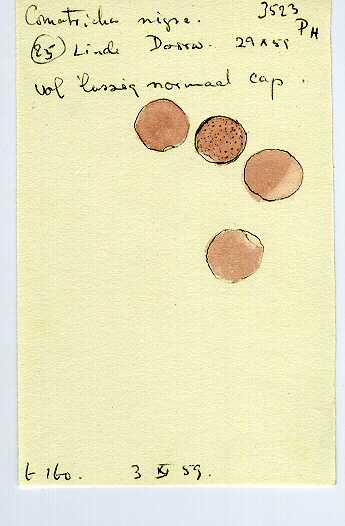 Comatricha nigra. 3523
PH
(85) Linde Doorw. 29 X 59
vol luszig normaal cap.
t 160. 3 XI 59.